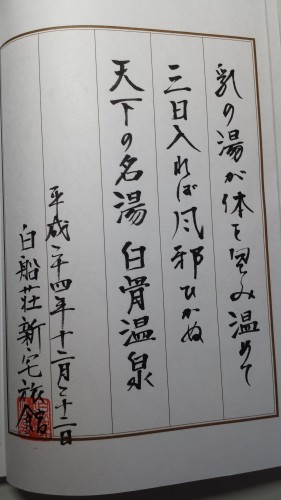 乳の湯が体を包み温めて
三日入れば風邪ひかぬ
天下の名湯 白骨温泉
平成二十四年十二月二十二日
白船荘新宅旅館